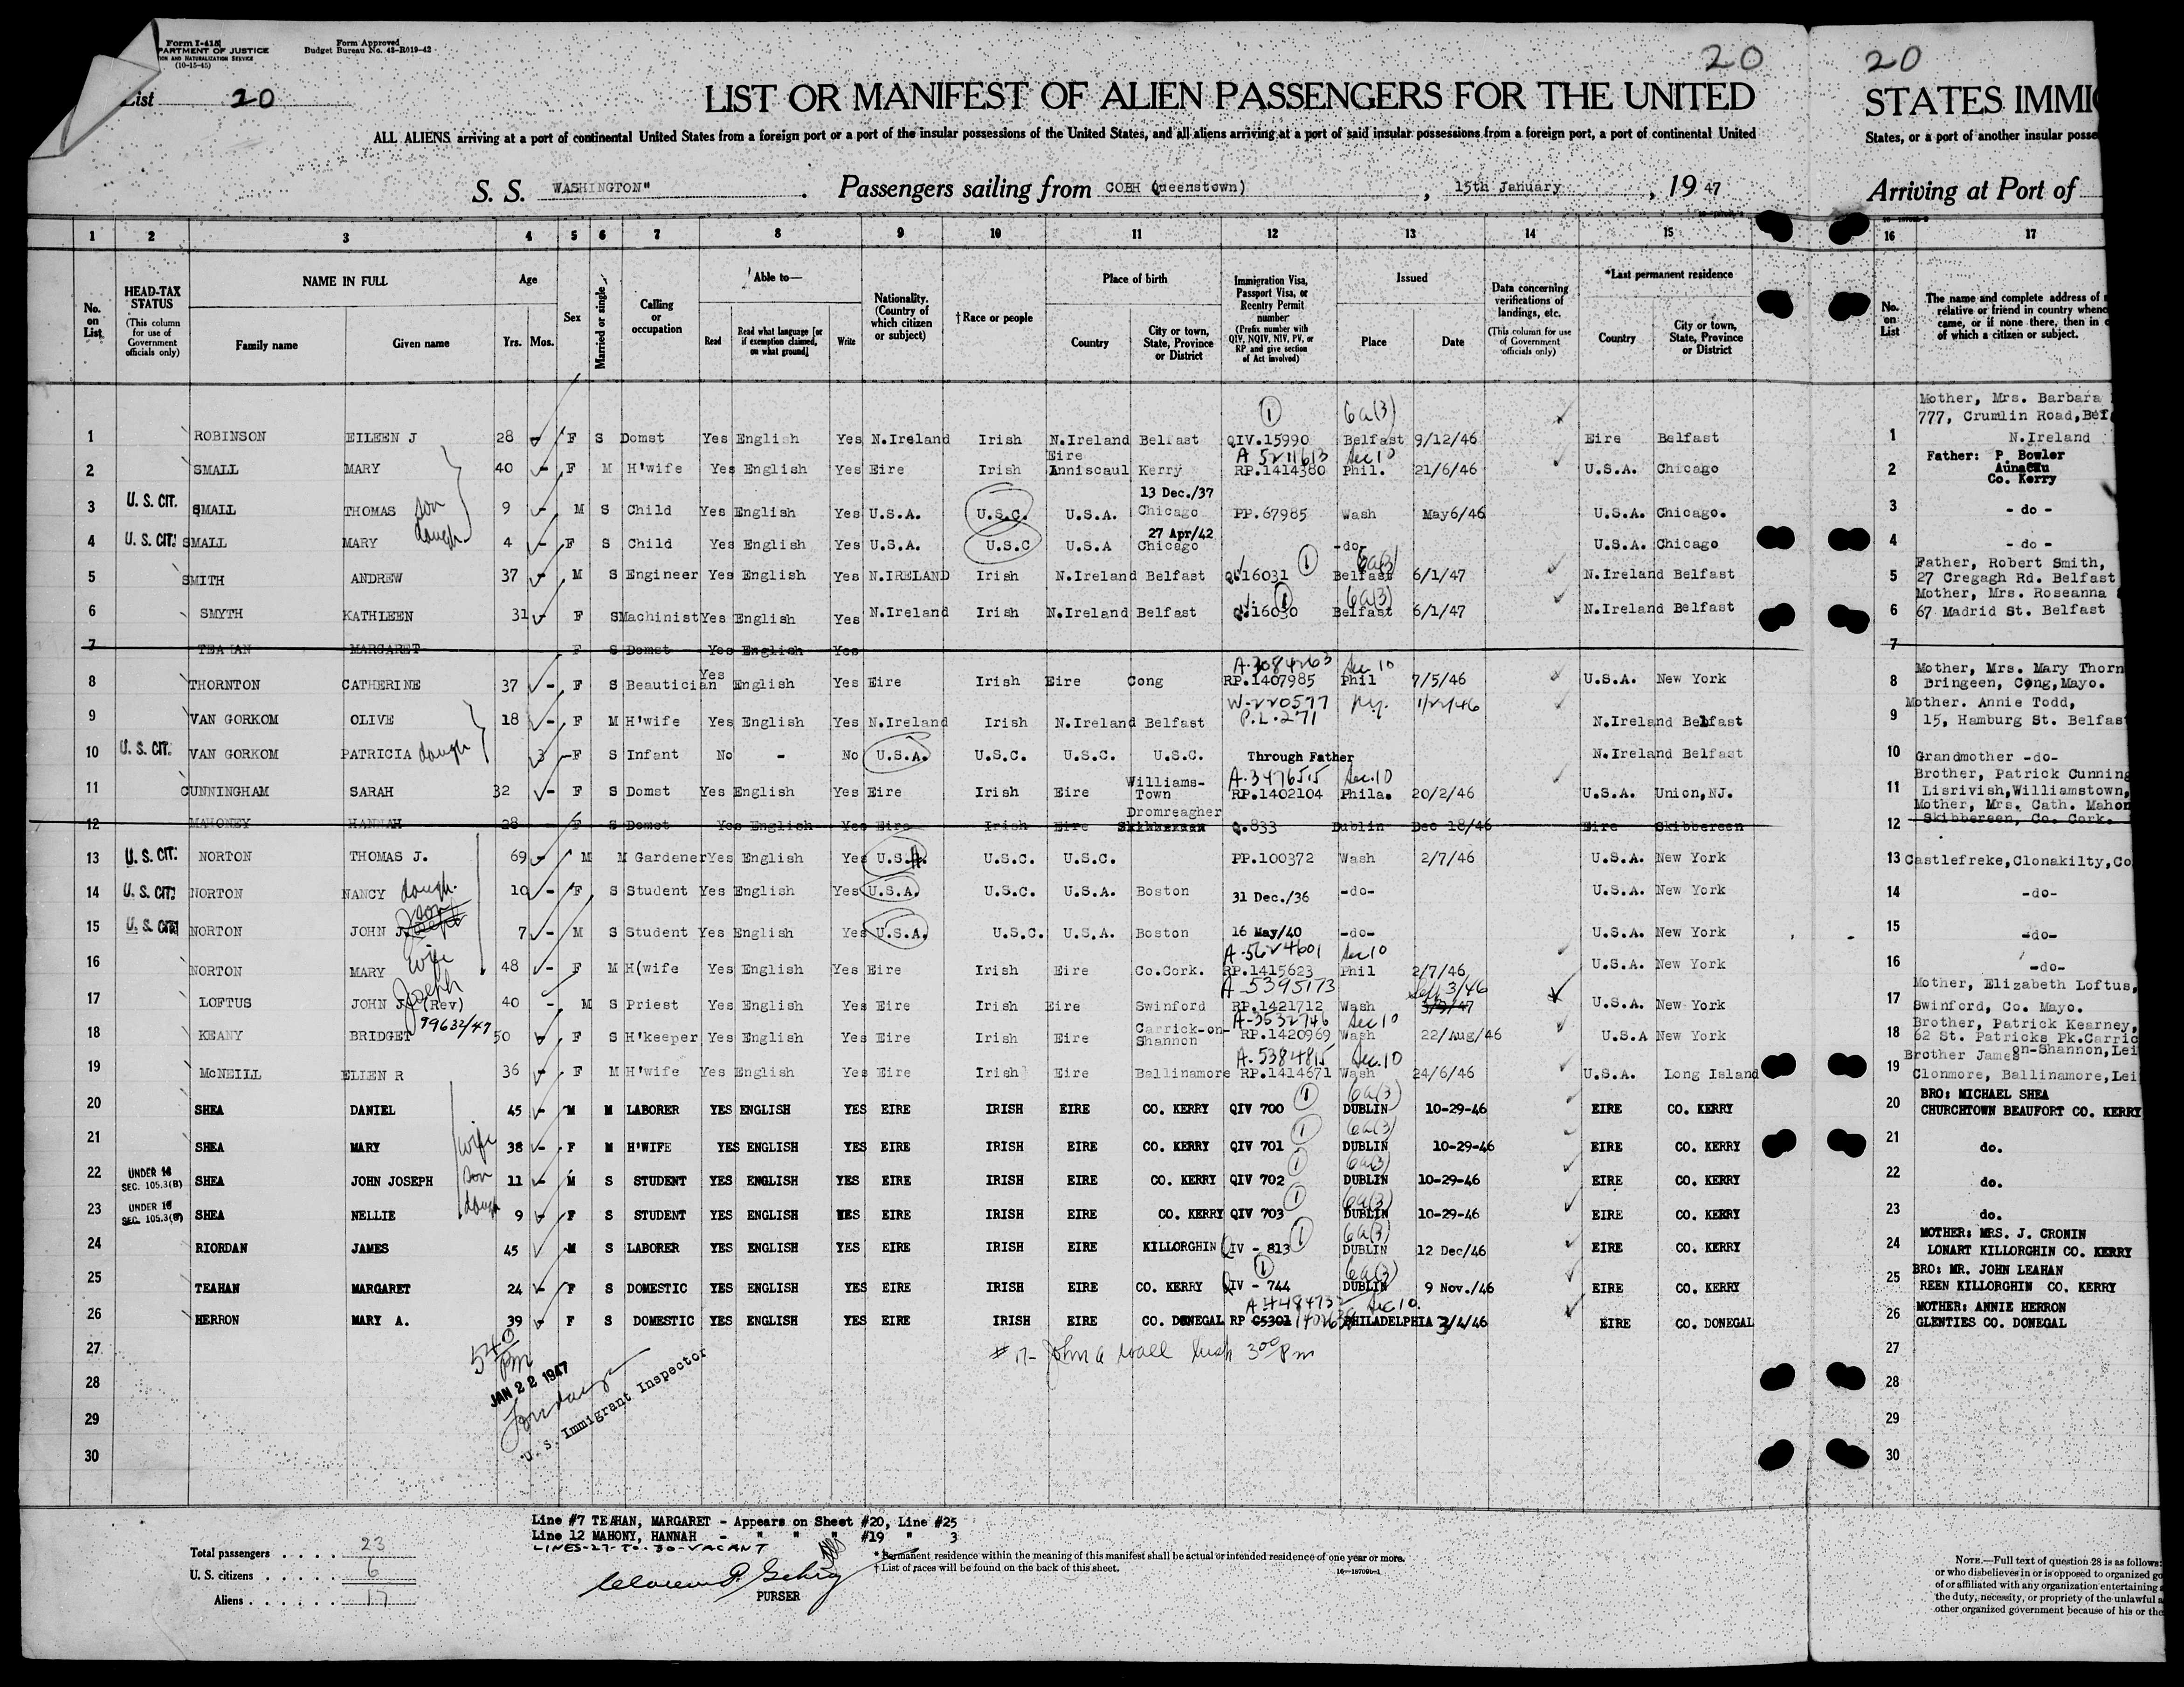 Form I-415
DEPARTMENT OF JUSTICE
IMMIGRATION AND NATURALIZATION SERVICE
(10-15-45)
Form Approved
Budget Bureau No. 43-R019-42
List 20
20
20
LIST OR MANIFEST OF ALIEN PASSENGERS FOR THE UNITED STATES IMMI
ALL ALIENS arriving at a port of continental United States from a foreign port or a port of the insular possessions of the United States, and all aliens arriving at a port of said insular possessions from a foreign port, a port of continental United
States, or a port of another insular posse
S. S. WASHINGTON" . Passengers sailing from COBH (Queenstown) , 15th January , 19 47
Arriving at Port of
1 2 3 4 5 6 7 8 9 10 11 12 13 14 15 16 17
No. on List
HEAD-TAX STATUS
(This column for use of Government officials only)
NAME IN FULL
Family name Given name
Age
Yrs. Mos.
Sex
Married or single
Calling or occupation
Able to—
Read Read what language [or if exemption claimed, on what ground] Write
Nationality. (Country of which citizen or subject)
†Race or people
Place of birth
Country City or town, State, Province or District
Immigration Visa, Passport Visa, or Reentry Permit number
(Prefix number with QIV, NQIV, NIV, PV, or RP and give section of Act involved)
Issued
Place Date
Data concerning verifications of landings, etc.
(This column for use of Government officials only)
*Last permanent residence
Country City or town, State, Province or District
No. on List
The name and complete address of
relative or friend in country whence
came, or if none there, then in
of which a citizen or subject.
1 6a(3) Mother, Mrs. Barbara
777, Crumlin Road, Bel
1 ROBINSON EILEEN J 28 - F S Domst Yes English Yes N.Ireland Irish N.Ireland Belfast QIV.15990 Belfast 9/12/46 Eire Belfast 1 N.Ireland
Eire A 5211613 Sec 10
2 SMALL MARY 40 - F M H'wife Yes English Yes Eire Irish Anniscaul Kerry RP.1414380 Phil. 21/6/46 U.S.A. Chicago 2 Father: P Bowler
Co. Kerry
13 Dec./37
3 U. S. CIT. SMALL THOMAS son 9 - M S Child Yes English Yes U.S.A. U.S.C. U.S.A. Chicago PP.67985 Wash May6/46 U.S.A. Chicago. 3 - do -
27 Apr/42
4 U. S. CIT. SMALL MARY daugh. 4 - F S Child Yes English Yes U.S.A. U.S.C U.S.A Chicago -do- U.S.A. Chicago 4 - do -
1 6a(3)
5 SMITH ANDREW 37 - M S Engineer Yes English Yes N.IRELAND Irish N.Ireland Belfast Q.16031 Belfast 6/1/47 N.Ireland Belfast 5 Father, Robert Smith,
27 Cregagh Rd. Belfast
1 6a(3)
6 SMYTH KATHLEEN 31 F S Machinist Yes English Yes N.Ireland Irish N.Ireland Belfast Q.16030 Belfast 6/1/47 N.Ireland Belfast 6 Mother, Mrs. Roseanna
67 Madrid St. Belfast
7 TEAHAN MARGARET F S Domst Yes English Yes 7
A-3084263 Sec 10
8 THORNTON CATHERINE 37 - F S Beautician Yes English Yes Eire Irish Eire Cong RP.1407985 Phil 7/5/46 U.S.A. New York 8 Mother, Mrs. Mary Thorn
Dringeen, Cong, Mayo.
W-220577 N.y. 1/22/46
9 VAN GORKOM OLIVE 18 - F M H'wife Yes English Yes N.Ireland Irish N.Ireland Belfast P.L.271 N.Ireland Belfast 9 Mother. Annie Todd,
15, Hamburg St. Belfas
10 U. S. CIT. VAN GORKOM PATRICIA daugh 3 F S Infant No - No U.S.A. U.S.C. U.S.C. U.S.C. Through Father N.Ireland Belfast 10 Grandmother -do-
A-3476515 Sec.10
11 CUNNINGHAM SARAH 32 - F S Domst Yes English Yes Eire Irish Eire Williams-Town RP.1402104 Phila. 20/2/46 U.S.A. Union, NJ. 11 Brother, Patrick Cunning
Lisrivish, Williamstown,
12 MAHONEY HANNAH 28 - F S Domst Yes English Yes Eire Irish Eire Dromreagher Skibbereen Q.833 Dublin Dec 18/46 Eire Skibbereen 12 Mother, Mrs. Cath. Mahon
Skibbereen, Co. Cork.
13 U. S. CIT. NORTON THOMAS J. 69 - M M Gardener Yes English Yes U.S.A. U.S.C. U.S.C. PP.100372 Wash 2/7/46 U.S.A. New York 13 Castlefreke, Clonakilty, Co
14 U. S. CIT. NORTON NANCY daugh. 10 - F S Student Yes English Yes U.S.A. U.S.C. U.S.A. Boston 31 Dec./36 -do- U.S.A. New York 14 -do-
15 U. S. CIT NORTON JOHN J. son Joseph 7 - M S Student Yes English Yes U.S.A. U.S.C. U.S.A. Boston 16 May/40 -do- U.S.A. New York 15 -do-
A-5624601 Sec 10
16 NORTON MARY wife 48 - F M H(wife Yes English Yes Eire Irish Eire Co.Cork. RP.1415623 Phil 2/7/46 U.S.A. New York 16 -do-
A-5395173 3/46
17 LOFTUS JOHN J. Joseph (Rev) 40 - M S Priest Yes English Yes Eire Irish Eire Swinford RP.1421712 Wash U.S.A. New York 17 Mother, Elizabeth Loftus,
Swinford, Co. Mayo.
99632/47 A-3532746 Sec 10
18 KEANY BRIDGET 50 - F S H'keeper Yes English Yes Eire Irish Eire Carrick-on-Shannon RP.1420969 Wash 22/Aug/46 U.S.A New York 18 Brother, Patrick Kearney,
62 St. Patricks Pk.Carric
on-Shannon, Lei
A-5384815 Sec.10
19 McNEILL ELLEN R 36 - F M H'wife Yes English Yes Eire Irish Eire Ballinamore RP.1414671 Wash 24/6/46 U.S.A. Long Island 19 Brother James
Clonmore, Ballinamore, Lei
1 6a(3)
20 SHEA DANIEL 45 - M M LABORER YES ENGLISH YES EIRE IRISH EIRE CO. KERRY QIV 700 DUBLIN 10-29-46 EIRE CO. KERRY 20 BRO: MICHAEL SHEA
CHURCHTOWN BEAUFORT CO. KERRY
1 6a(3)
21 SHEA MARY wife 38 - F M H'WIFE YES ENGLISH YES EIRE IRISH EIRE CO. KERRY QIV 701 DUBLIN 10-29-46 EIRE CO. KERRY 21 do.
1 6a(3)
22 UNDER 16 SEC. 105.3(B) SHEA JOHN JOSEPH son 11 - M S STUDENT YES ENGLISH YES EIRE IRISH EIRE CO. KERRY QIV 702 DUBLIN 10-29-46 EIRE CO. KERRY 22 do.
1 6a(3)
23 UNDER 16 SEC. 105.3(B) SHEA NELLIE daugh 9 - F S STUDENT YES ENGLISH YES EIRE IRISH EIRE CO. KERRY QIV 703 DUBLIN 10-29-46 EIRE CO. KERRY 23 do.
1 6a(3)
24 RIORDAN JAMES 45 M S LABORER YES ENGLISH YES EIRE IRISH EIRE KILLORGHIN QIV - 813 DUBLIN 12 Dec/46 EIRE CO. KERRY 24 MOTHER: MRS. J. CRONIN
LONART KILLORGHIN CO. KERRY
1 6a(3)
25 TEAHAN MARGARET 24 - F S DOMESTIC YES ENGLISH YES EIRE IRISH EIRE CO. KERRY QIV - 744 DUBLIN 9 Nov./46 EIRE CO. KERRY 25 BRO: MR. JOHN LEAHAN
REEN KILLORGHIN CO. KERRY
Sec 10.
26 HERRON MARY A. 39 - F S DOMESTIC YES ENGLISH YES EIRE IRISH EIRE CO. DONEGAL RP C5301 PHILADELPHIA 3/4/46 EIRE CO. DONEGAL 26 MOTHER: ANNIE HERRON
GLENTIES CO. DONEGAL
27 27
28 28
29 29
30 30
540 Pm
JAN 22 1947
U. S. Immigrant Inspector
# 17- John a wall 300 Pm
Line #7 TEAHAN, MARGARET - Appears on Sheet #20, Line #25
Line 12 MAHONY, HANNAH - " " " #19 " 3
LINES-27-TO-30-VACANT
Total passengers 23
U. S. citizens 6
Aliens 17
PURSER
* Permanent residence within the meaning of this manifest shall be actual or intended residence of one year or more.
† List of races will be found on the back of this sheet.
16—18709b-1
NOTE.—Full text of question 28 is as follows:
or who disbelieves in or is opposed to organized go
of or affiliated with any organization entertaining
the duty, necessity, or propriety of the unlawful a
other organized government because of his or the